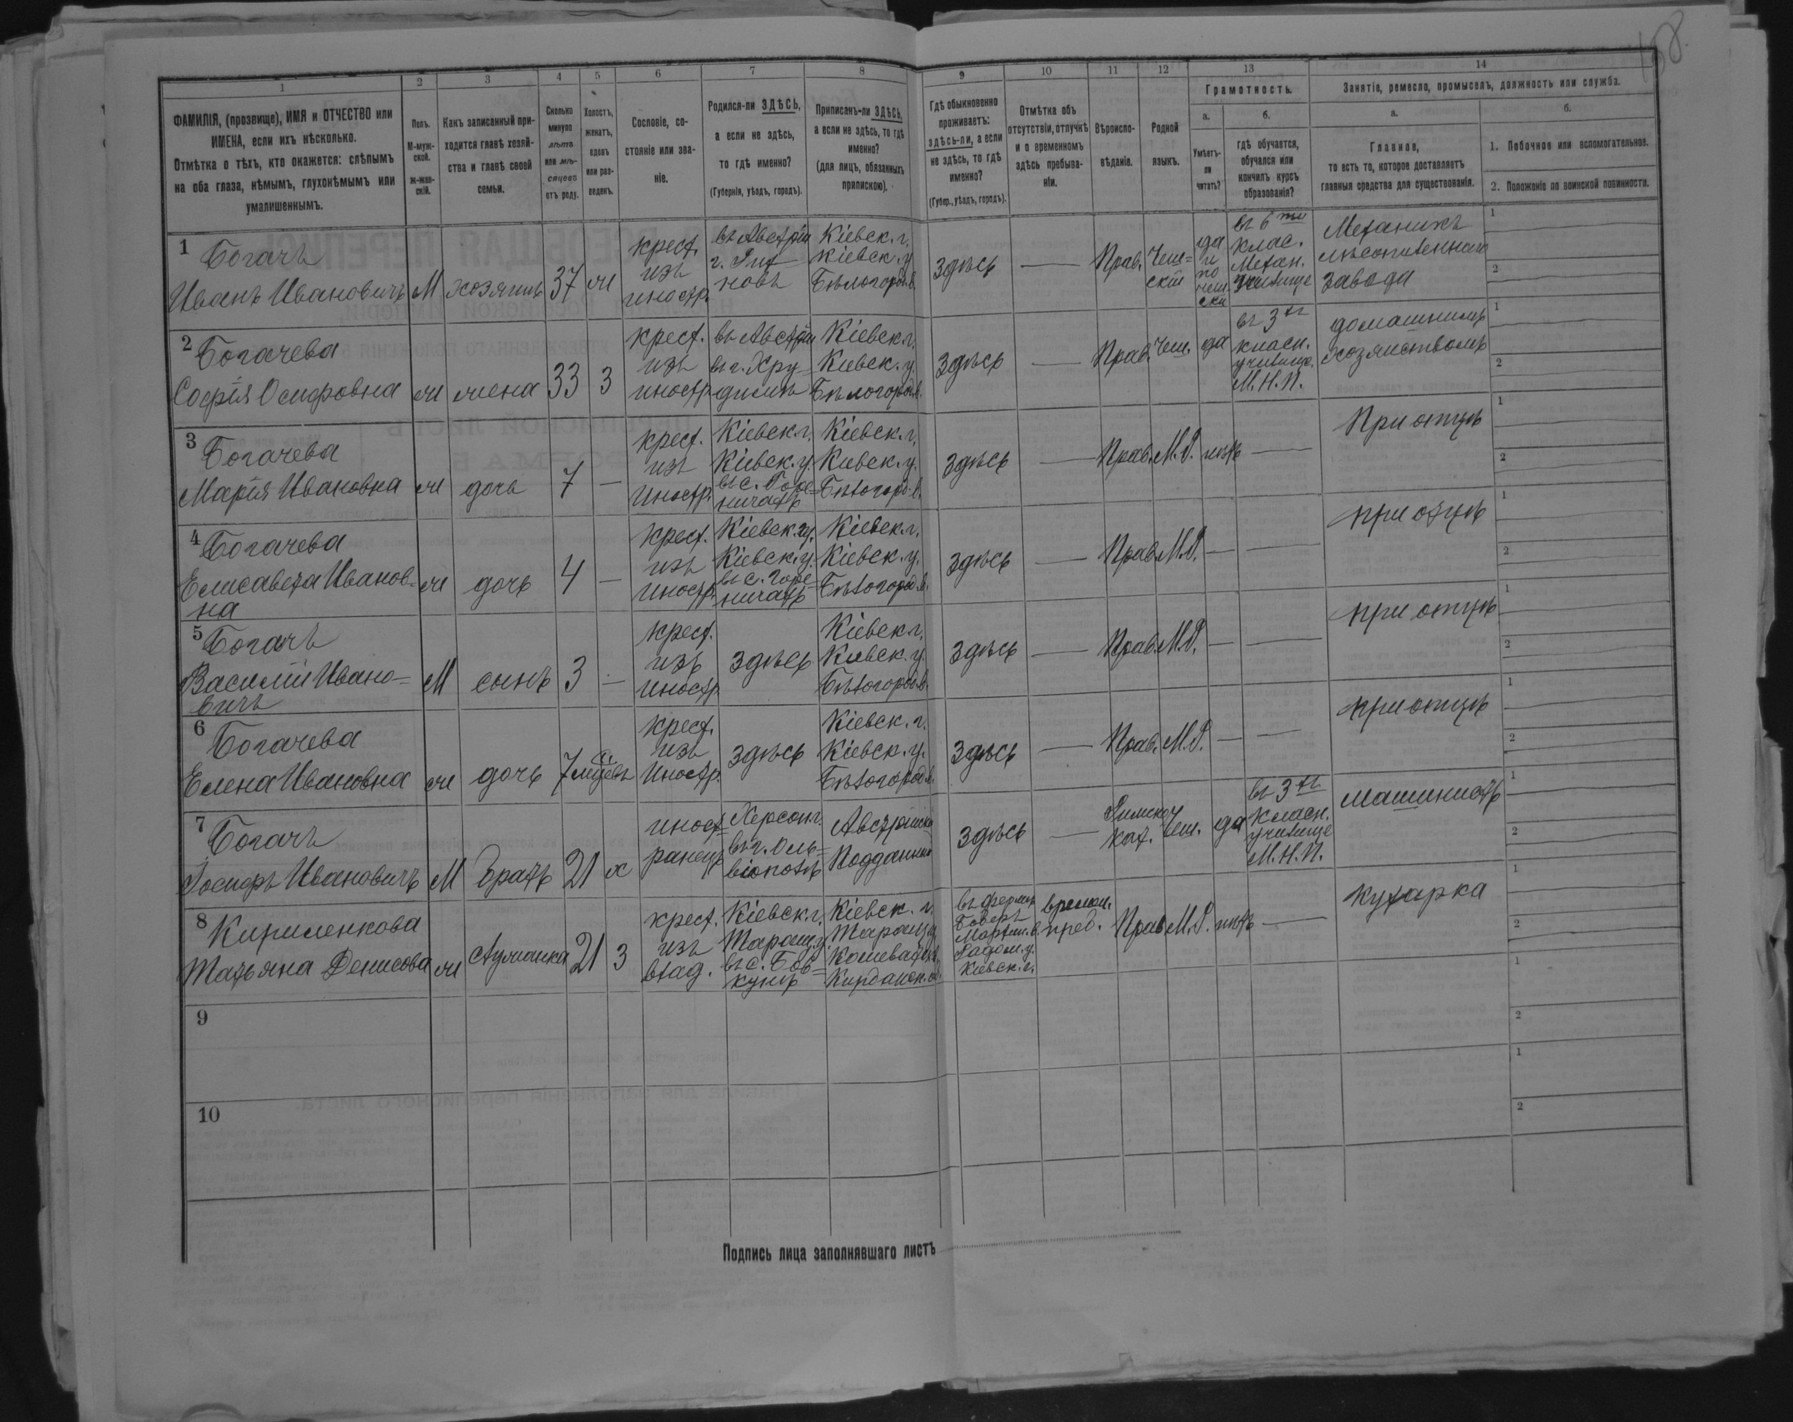 158.
1
2
3
4
5
6
7
8
9
10
11
12
13
14
ФАМИЛІЯ, (прозвище), ИМЯ и ОТЧЕСТВО или
ИМЕНА, если ихъ нѣсколько.
Отмѣтка о тѣхъ, кто окажется: слѣпымъ
на оба глаза, нѣмымъ, глухонѣмымъ или
умалишеннымъ.
Полъ.
М-муж-
ской.
ж-жен-
скій.
Какъ записанный при-
ходится главѣ хозяй-
ства и главѣ своей
семьи.
Сколько
минуло
лѣтъ
или мѣ-
сяцевъ
отъ роду.
Холостъ,
женатъ,
вдовъ
или раз-
веденъ.
Сословіе, со-
стояніе или зва-
ніе.
Родился-ли ЗДѢСЬ,
а если не здѣсь,
то гдѣ именно?
(Губернія, уѣздъ, городъ).
Приписанъ-ли ЗДѢСЬ,
а если не здѣсь, то гдѣ
именно?
(для лицъ, обязанныхъ
припискою).
Гдѣ обыкновенно
проживаетъ:
здѣсь-ли, а если
не здѣсь, то гдѣ
именно?
(Губер., уѣздъ, городъ).
Отмѣтка объ
отсутствіи, отлучкѣ
и о временномъ
здѣсь пребыва-
ніи.
Вѣроиспо-
вѣданіе.
Родной
языкъ.
Грамотность.
а.
Умѣетъ-
ли
читать?
б.
гдѣ обучается,
обучался или
кончилъ курсъ
образованія?
Занятіе, ремесло, промыселъ, должность или служба.
а.
Главное,
то есть то, которое доставляетъ
главныя средства для существованія.
б.
1. Побочное или вспомогательное.
2. Положеніе по воинской повинности.
1
Богачъ
Иванъ Ивановичъ
М
хозяинъ
37
ж
крест.
изъ
иностр.
въ Австріи
новъ
Кіевск. г.
Кіевск. у.
Бѣлогород. в.
здѣсь
—
Прав.
Чеш-
скій
да
и
по
чеш-
ски
въ 6ти
клас.
Механ.
училище
Механикъ
лѣсопиленнаго
завода
1
2
2
Богачева
Софія Осиповна
ж
жена
33
З
крест.
изъ
иностр.
въ Австріи
въ г. Хру-
димъ
Кіевск. г.
Кіевск. у.
Бѣлогород. в.
здѣсь
—
Прав.
Чеш.
да
въ 3хъ
класн.
училище.
М. Н. П.
домашнимъ
хозяйствомъ
1
2
3
Богачева
Марія Ивановна
ж
дочь
7
—
крест.
изъ
иностр.
Кіевск. г.
Кіевск. у.
въ с. Горе-
ничахъ
Кіевск. г.
Кіевск. у.
Бѣлогород. в.
здѣсь
—
Прав.
М. Р.
нѣтъ
—
При отцѣ
1
2
4
Богачева
Елисавета Иванов-
на
ж
дочь
4
—
крест.
изъ
иностр.
Кіевск. г.
Кіевск. у.
въ с. Горе-
ничахъ
Кіевск. г.
Кіевск. у.
Бѣлогород. в.
здѣсь
—
Прав.
М. Р.
—
—
при отцѣ
1
2
5
Богачъ
Василій Ивано-
вичъ
М
сынъ
3
—
крест.
изъ
иностр.
здѣсь
Кіевск. г.
Кіевск. у.
Бѣлогород. в.
здѣсь
—
Прав.
М. Р.
—
—
при отцѣ
1
2
6
Богачева
Елена Ивановна
ж
дочь
7 мѣсяцевъ
крест.
изъ
иностр.
здѣсь
Кіевск. г.
Кіевск. у.
Бѣлогород. в.
здѣсь
—
Прав.
М. Р.
—
—
при отцѣ
1
2
7
Богачъ
Іосифъ Ивановичъ
М
братъ
21
х
иност-
ранецъ
Херсон. г.
въ г. Оль-
віополѣ
Австрійскій
Подданный
здѣсь
—
Римско
кат.
Чеш.
да
въ 3хъ
класн.
училище
М. Н. П.
машинистъ
1
2
8
Кириленкова
Татьяна Денисова
ж
служанка
21
З
крест.
изъ
влад.
Кіевск. г.
Таращ. у.
въ с. Бов-
кунъ
Кіевск. г.
Таращ. у.
Кошеватск. в.
здѣсь
Радом. у.
Кіевск. г.
времен.
преб.
Прав.
М. Р.
нѣтъ
—
Кухарка
1
2
9
1
2
10
1
2
Подпись лица заполнявшаго листъ